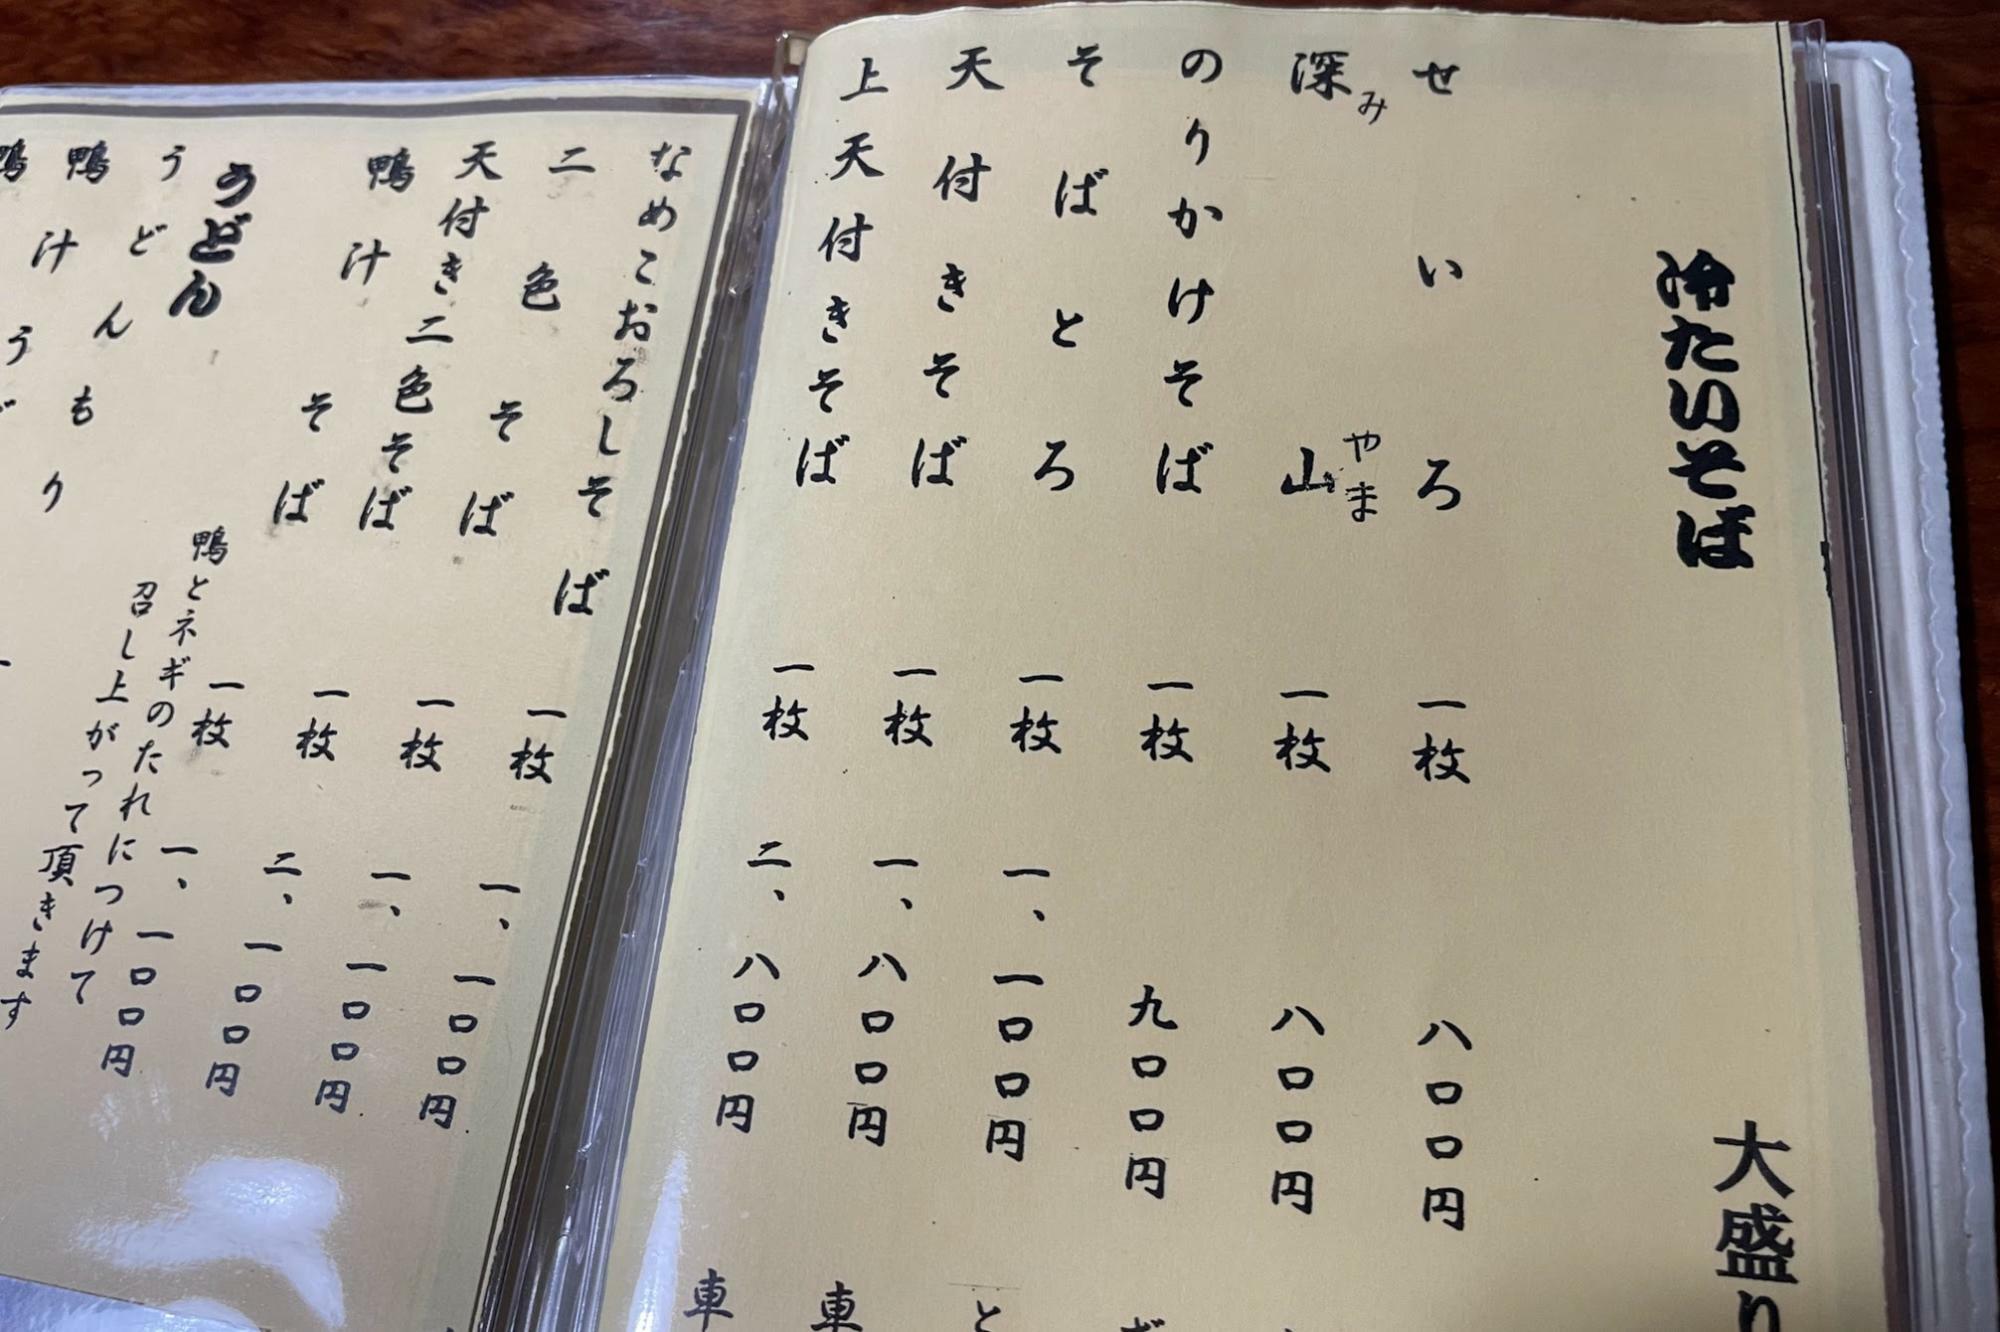 冷たいそば 大盛り
せいろ 一枚 八〇〇円
深山 一枚 八〇〇円
みやま
のりかけそば 一枚 九〇〇円
そばとろ 一枚 一、一〇〇円 と
天付きそば 一枚 一、八〇〇円 車
上天付きそば 一枚 二、八〇〇円 車
なめこおろしそば 一枚 一、一〇〇円
二色そば 一枚 一、一〇〇円
天付き二色そば 一枚 二、一〇〇円
鴨汁そば 一枚 一、一〇〇円
鴨とネギのたれにつけて
召し上がって頂きます
うどん
うどんもり
鴨汁うど
鴨